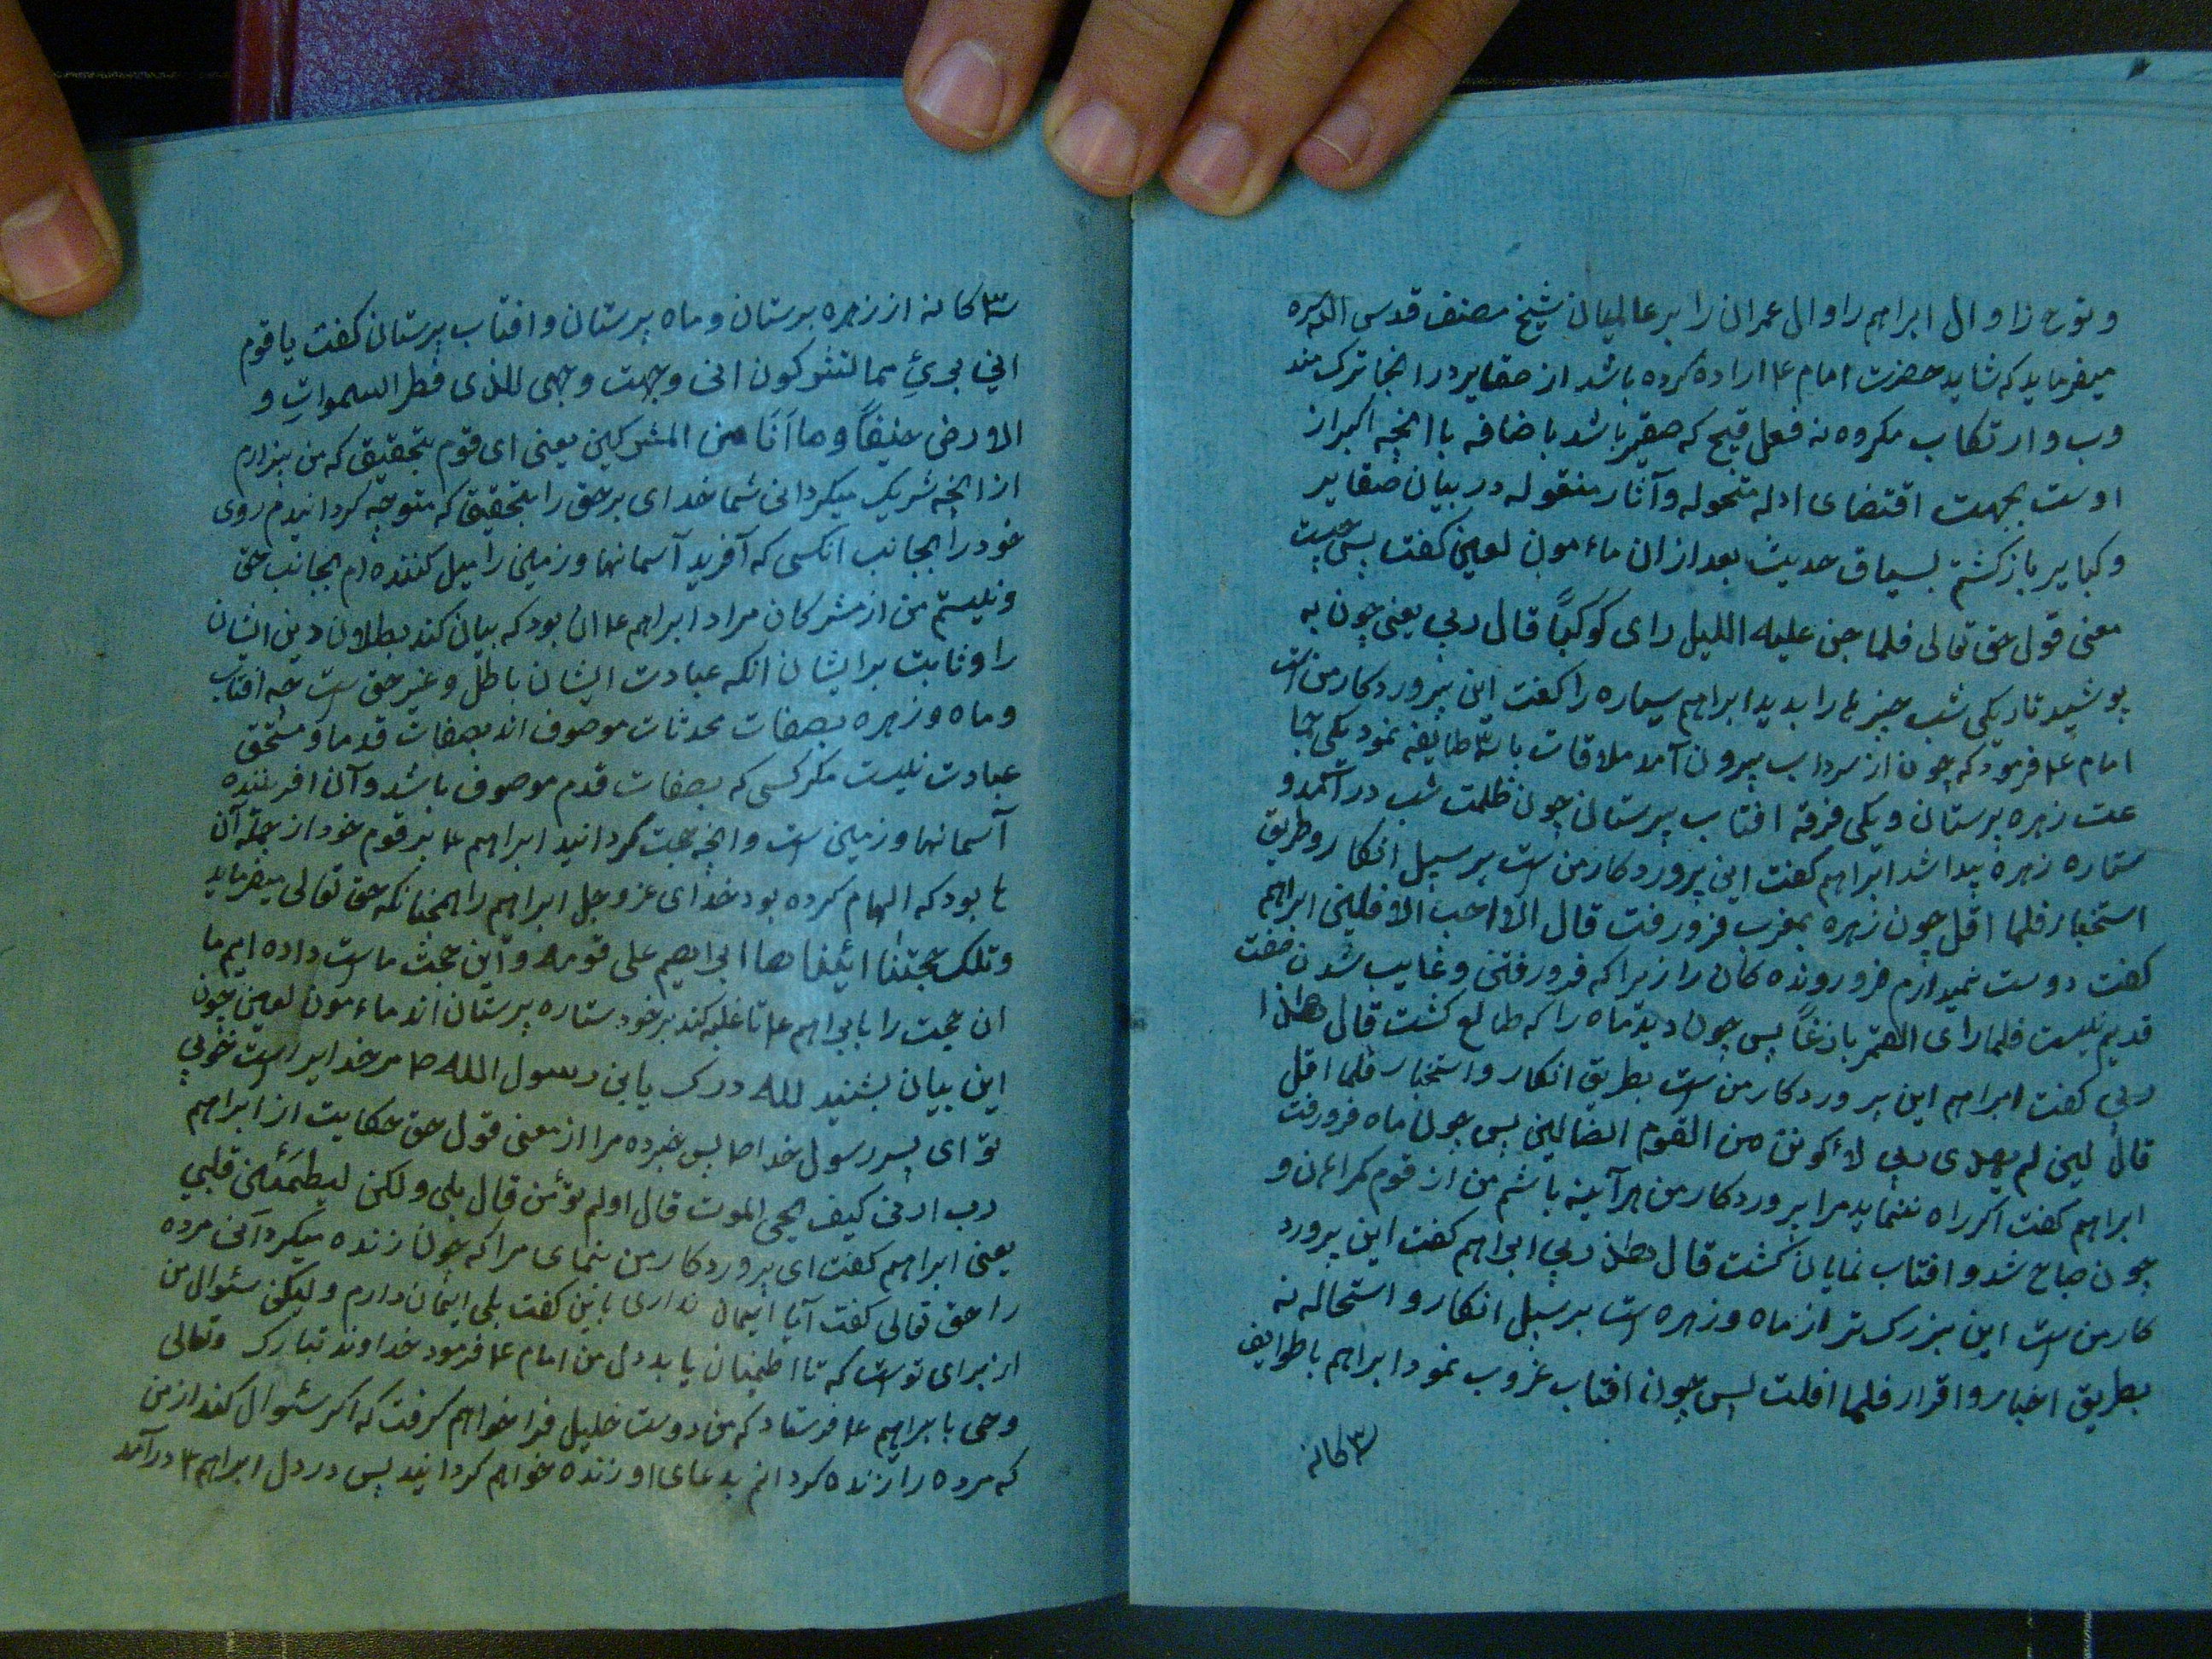 و نوح را و ال ابراهم را و ال عمران را بر عالمیان شیخ مصنف قدس الله سره
میفرماید که شاید حضرت امام ۴ اراده کرده باشد از صقایر در اینجا ترک مند
وب و ارتکاب مکروه نه فعل قبیح که صقیر باشد باضافه با انچه اکبر از
اوست بجهت اقتضای ادله متحوله و آثار منقوله در بیان صقایر
و کبایر باز کشتم بسیاق حدیث بعد از ان ماءمون لعین کفت پس چیست
معنی قول حق تعالی فلما جن علیه اللیل رای کوکباً قال ربی یعنی چون به
پوشید تاریکی شب چیزها را بدید ابراهم سیماره را کفت این پروردکار من است
امام ۴ فرمود که چون از سرداب بیرون آمد ملاقات با ۳ طایفه نمود یکی جما
عت زهره پرستان و یکی فرقه افتاب پرستان چون ظلمت شب در آمد و
ستاره زهره پیدا شد ابراهم کفت این پروردکار من است بر سبیل انکار و طریق
استخبار فلما افل چون زهره بمغرب فرو رفت قال لا احب الافلین ابراهم
کفت دوست نمیدارم فرو رونده کان را زیرا که فرو رفتنی و غایب شدن صفت
قدیم نیست فلما رای القمر بازغاً پس چون دید ماه را که طالع کشت قال هذا
ربی کفت ابراهم این پروردکار من است بطریق انکار و استخبار فلما افل
قال لین لم یهدی ربی لاکونن من القوم الضالین پس چون ماه فرو رفت
ابراهم کفت اکر راه ننماید مرا پروردکار من هرآینه باشم من از قوم کمراهان و
چون صباح شد و افتاب نمایان کشت قال هذا ربی ابراهم کفت این پرورد
کار من است این بزرک تر از ماه و زهره است بر سبیل انکار و استحاله نه
بطریق اخبار و اقرار فلما افلت پس چون افتاب غروب نمود ابراهم با طوایف
۳ کانه
۳ کانه از زهره پرستان و ماه پرستان و افتاب پرستان کفت یا قوم
انی بریئ مما تشرکون انی وجهت وجهی للذی فطر السموات و
الارض حنیفاً و ما اَنَا من المشرکین یعنی ای قوم بتحقیق که من بیزارم
از انچه شریک میکردانی شما خدای بر حق را بتحقیق که متوجه کردانیدم روی
خود را بجانب انکسی که آفرید آسمانها و زمین را میل کننده ام بجانب حق
و نیستم من از مشرکان مراد ابراهم ۴ ان بود که بیان کند بطلان دین ایشان
را و ثابت بر ایشان انکه عبادت ایشان باطل و غیر حق است چه افتاب
و ماه و زهره بصفات محدثات موصوف اند بصفات قدما و مستحق
عبادت نیست مکر کسی که بصفات قدم موصوف باشد و آن افریننده
آسمانها و زمین است و انچه حجت کردانید ابراهم ۴ بر قوم خود از جمله آن
ها بود که الهام کرده بود خدای عز و جل ابراهم را همچنانکه حق تعالی میفرماید
و تلک حجتنا اتیناها ابراهیم علی قومه و این حجت ماست داده ایم ما
ان حجت را بابراهم ۴ تا غلبه کند بر خود ستاره پرستان اند ماءمون لعین چون
این بیان بشنید لله درک یابن رسول الله ص مر خدایراست خوبی
تو ای پسر رسول خدا ص پس خبر ده مرا از معنی قول حق حکایت از ابراهم
رب ارنی کیف یحی الموت قال اولم تؤمن قال بلی و لکن لیطمئن قلبی
یعنی ابراهم کفت ای پروردکار من بنمای مرا که چون زنده میکردانی مرده
را حق تعالی کفت آیا ایمان نداری باین کفت بلی ایمان دارم و لیکن سئوال من
از برای توست که تا اطمینان یابد دل من امام ۴ فرمود خداوند تبارک و تعالی
وحی بابراهیم ۴ فرستاد که من دوست خلیل فرا خواهم کرفت که اکر سئوال کند از من
که مرده را زنده کردانم بدعای او زنده خواهم کردانید پس در دل ابراهم ۳ در آمد